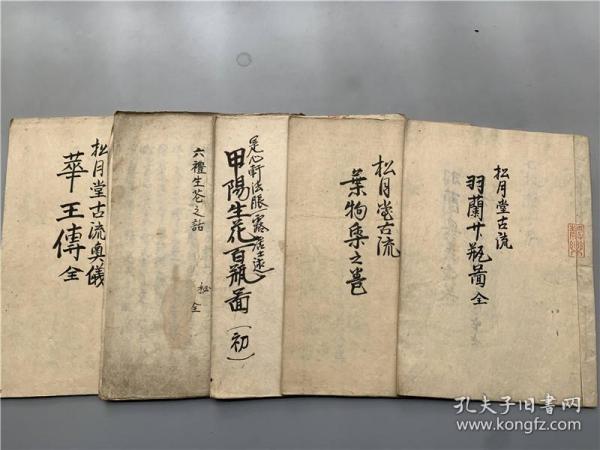 松月堂古流
羽蘭廿瓶圖全
松月堂古流
葉物集之巻
是心軒法眼
甲陽生花百瓶圖
(初)
六禮生花之話
秘
全
松月堂古流奥儀
華王傳全
孔夫子旧书网
www.kongfz.com